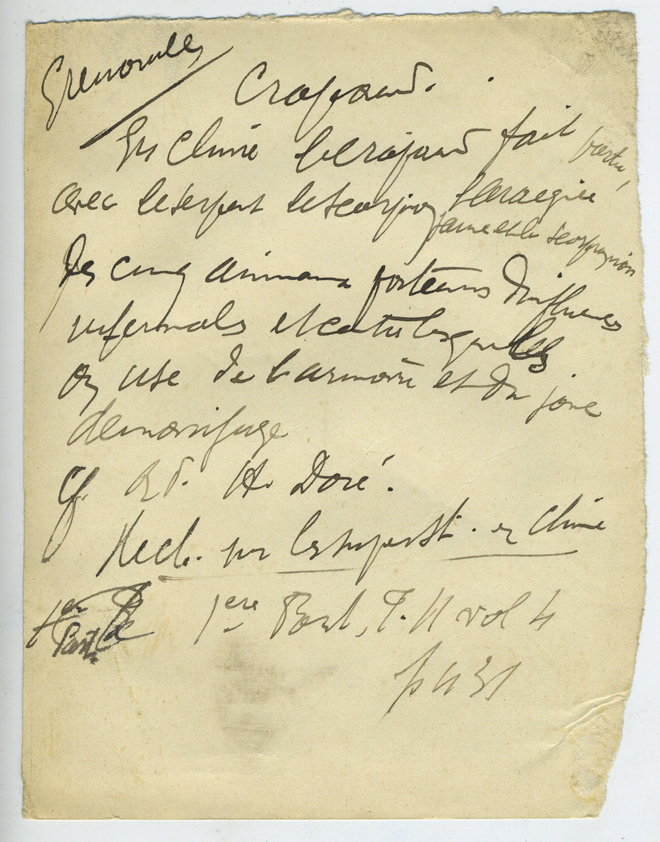 Grenouilles
Crapaud.
En Chine le crapaud fait partie,
avec le serpent le scorpion l'araignée
et le scorpion
des cinq animaux porteurs d'influences
infernales et
on use de l'armoise et du jonc
demonifuge
Cf. R. P. H. Doré.
Rech. sur les superst. en Chine
1ere Part, T. II vol 4
p 431